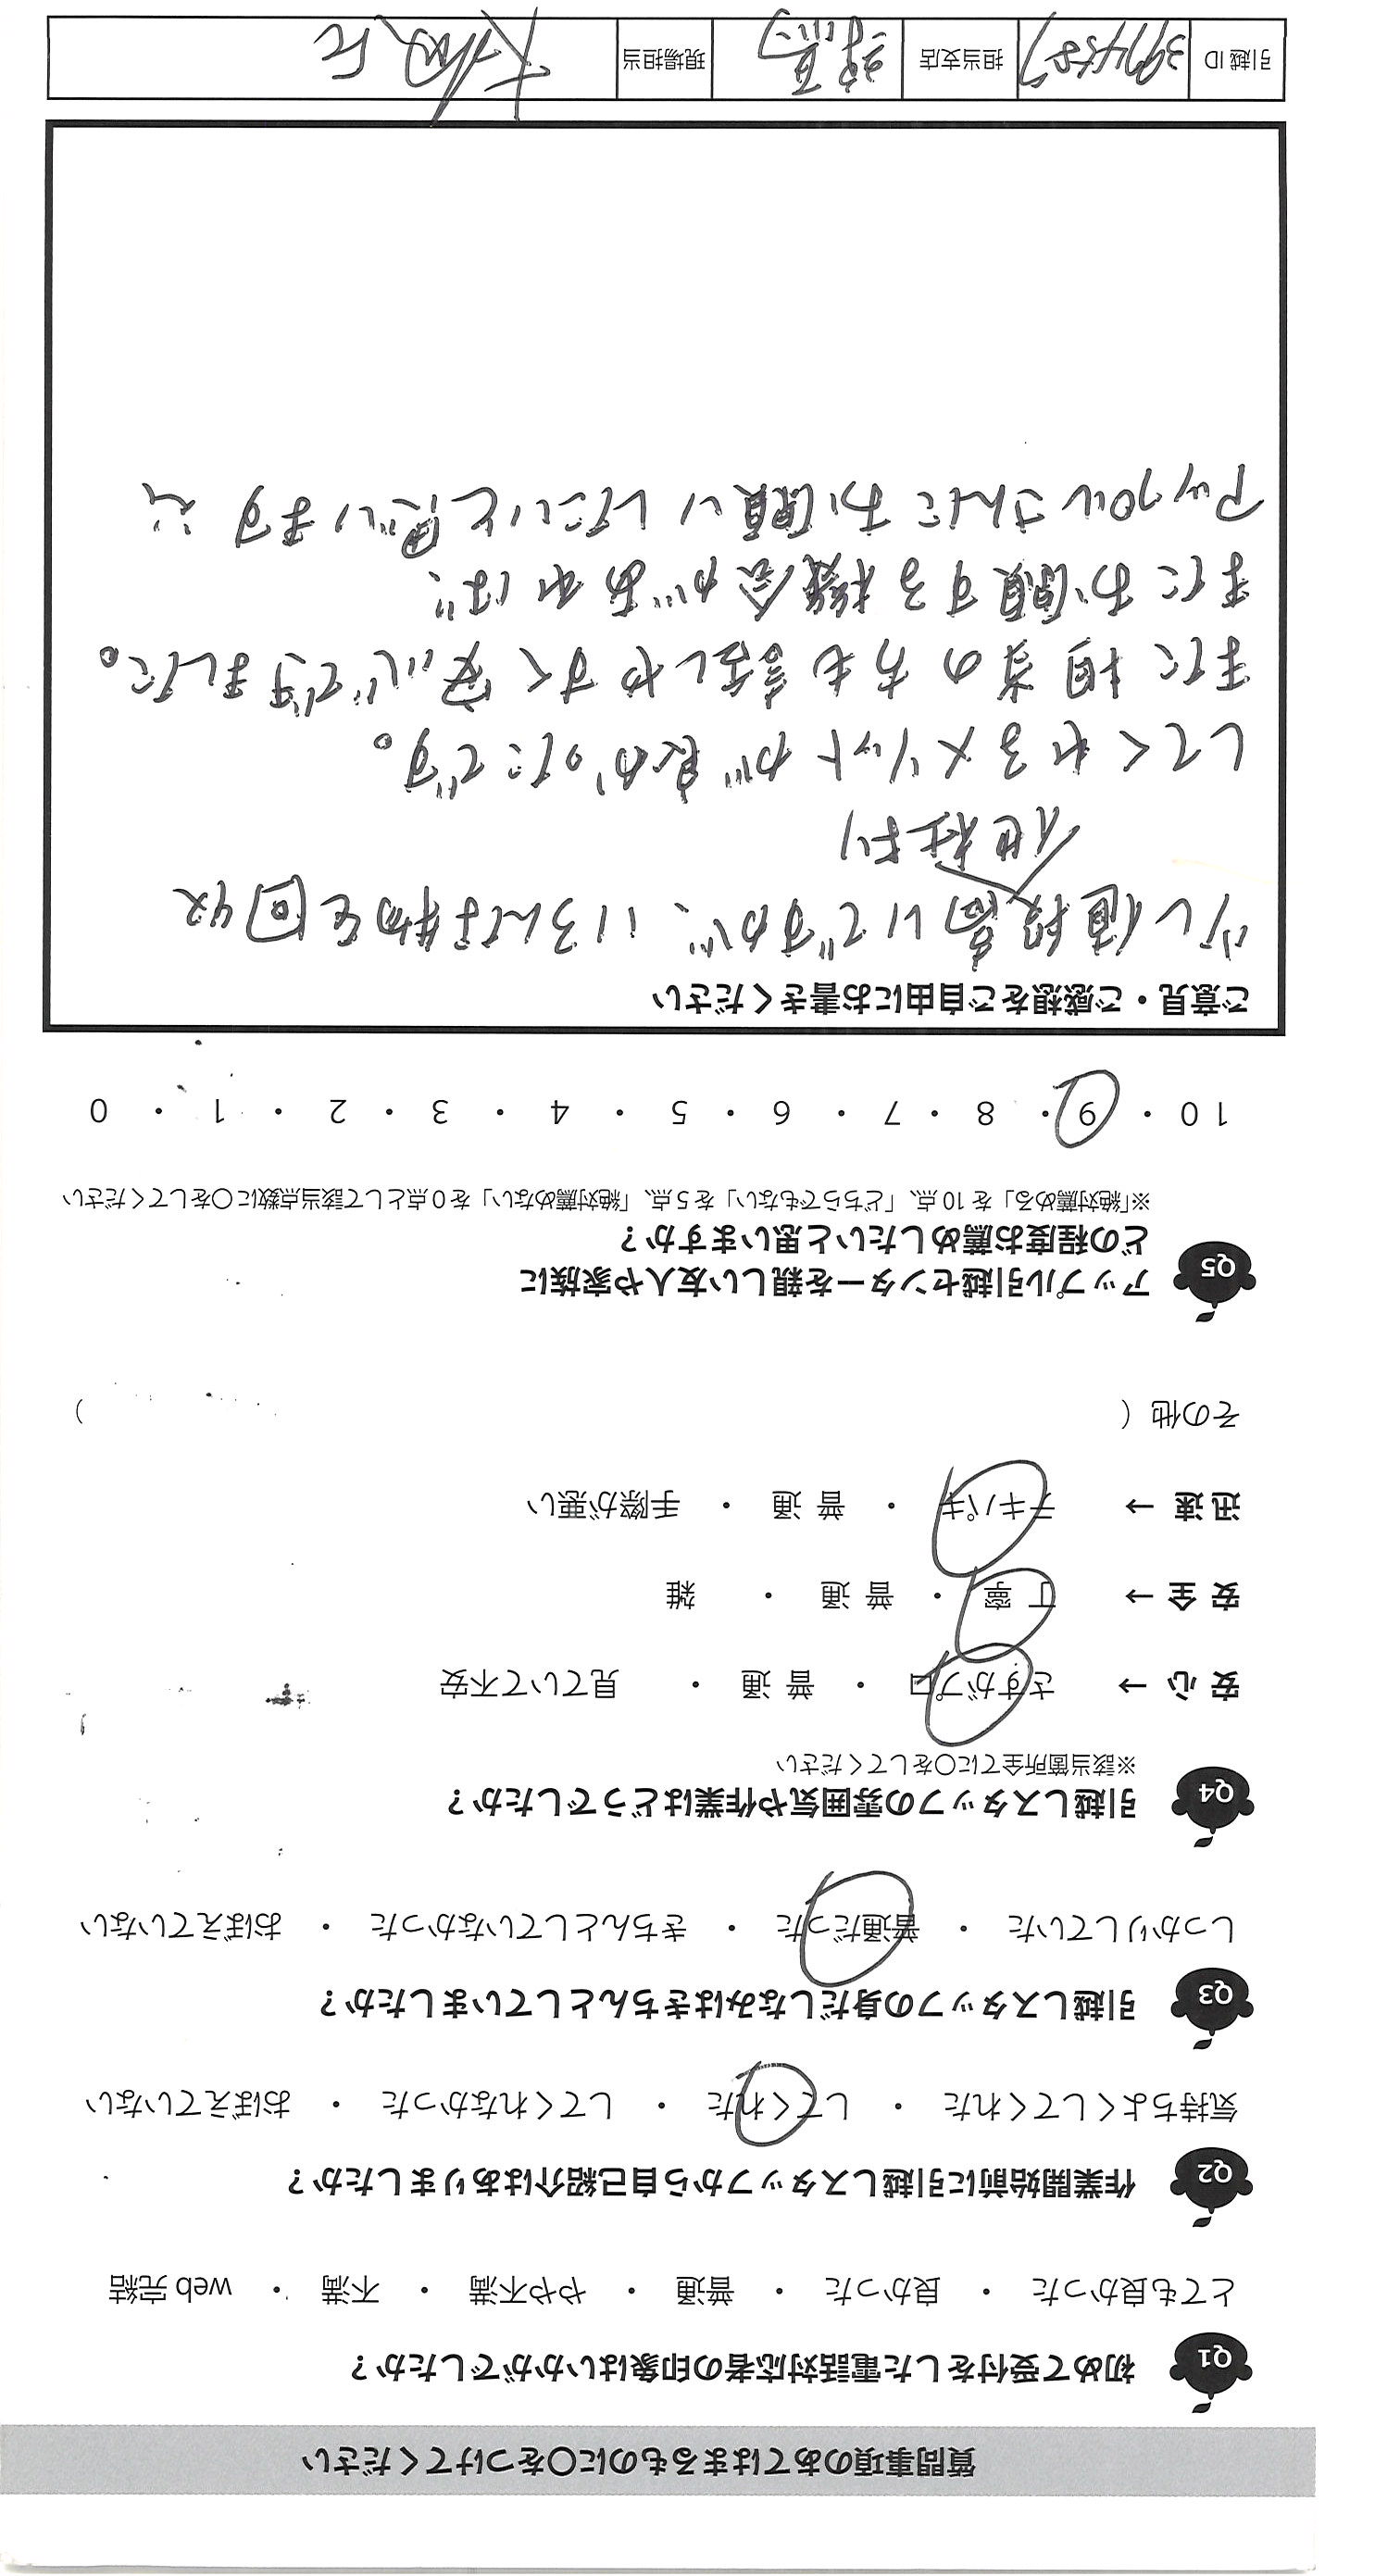 質問事項のあてはまるものに〇をつけてください
Q1 初めて受付をした電話対応者の印象はいかがでしたか？
とても良かった ・ 良かった ・ 普通 ・ やや不満 ・ 不満 ・ web 完結
Q2 作業開始前に引越しスタッフから自己紹介はありましたか？
気持ちよくしてくれた ・ してくれた ・ してくれなかった ・ おぼえていない
Q3 引越しスタッフの身だしなみはきちんとしていましたか？
しっかりしていた ・ 普通だった ・ きちんとしていなかった ・ おぼえていない
Q4 引越しスタッフの雰囲気や作業はどうでしたか？
※該当箇所全てに〇をしてください
安心 → さすがプロ ・ 普通 ・ 見ていて不安
安全 → 丁寧 ・ 普通 ・ 雑
迅速 → テキパキ ・ 普通 ・ 手際が悪い
その他（ ）
Q5 アップル引越センターを親しい友人や家族に
どの程度お薦めしたいと思いますか？
※「絶対薦める」を 10 点、「どちらでもない」を 5 点、「絶対薦めない」を 0 点として該当点数に〇をしてください
10 ・ 9 ・ 8 ・ 7 ・ 6 ・ 5 ・ 4 ・ 3 ・ 2 ・ 1 ・ 0
ご意見・ご感想をご自由にお書きください
少し値段高いですが、いろんな物を回収
他社より
してくれるメリットが良かったです。
また担当の方も話しやすく安心できました。
またお願する機会があれば、
アップルさんにお願いしたいと思います
引越 ID 担当支店 現場担当